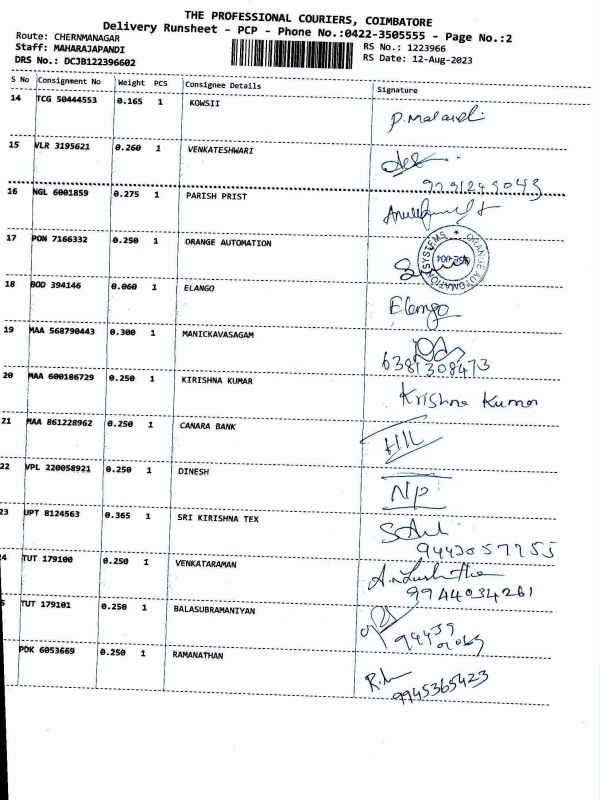 THE PROFESSIONAL COURIERS, COIMBATORE
Delivery Runsheet - PCP - Phone No.:0422-3505555 - Page No.:2
Route: CHERNMANAGAR
Staff: MAHARAJAPANDI
DRS No.: DCJB122396602
RS No.: 1223966
RS Date: 12-Aug-2023
S No Consignment No Weight PCS Consignee Details Signature
14 TCG 50444553 0.165 1 KOWSII
15 VLR 3195621 0.260 1 VENKATESHWARI
16 NGL 6001859 0.275 1 PARISH PRIST
17 PON 7166332 0.250 1 ORANGE AUTOMATION
ORANGE AUTOMATION SYSTEMS
18 BOD 394146 0.060 1 ELANGO Elango
19 MAA 568790443 0.300 1 MANICKAVASAGAM
6381308473
20 MAA 600186729 0.250 1 KIRISHNA KUMAR Krishna Kumar
21 MAA 861228962 0.250 1 CANARA BANK
22 VPL 220058921 0.250 1 DINESH NP
23 UPT 8124563 0.365 1 SRI KIRISHNA TEX
4 TUT 179100 0.250 1 VENKATARAMAN
9944034261
5 TUT 179101 0.250 1 BALASUBRAMANIYAN
PDK 6053669 0.250 1 RAMANATHAN
9945365423